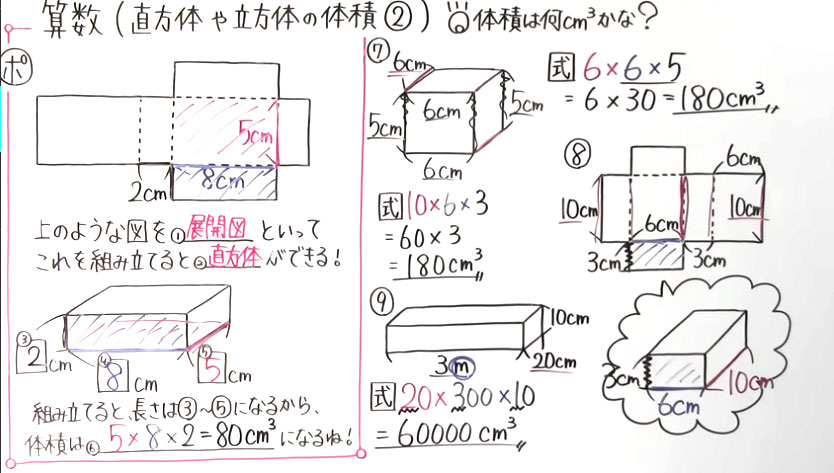 算数(直方体や立方体の体積②) 体積は何cm³かな?
ポ
5cm
8cm
2cm
上のような図を①展開図といって
これを組み立てると②直方体ができる!
③2cm
④8cm
⑤5cm
組み立てると、長さは③~⑤になるから、
体積は⑥5×8×2=80cm³になるね!
⑦
6cm
6cm
5cm
5cm
6cm
式 6×6×5
=6×30=180cm³
⑧
6cm
10cm
10cm
6cm
3cm
3cm
式 10×6×3
=60×3
=180cm³
3cm
6cm
10cm
⑨
10cm
20cm
3m
式 20×300×10
=60000cm³